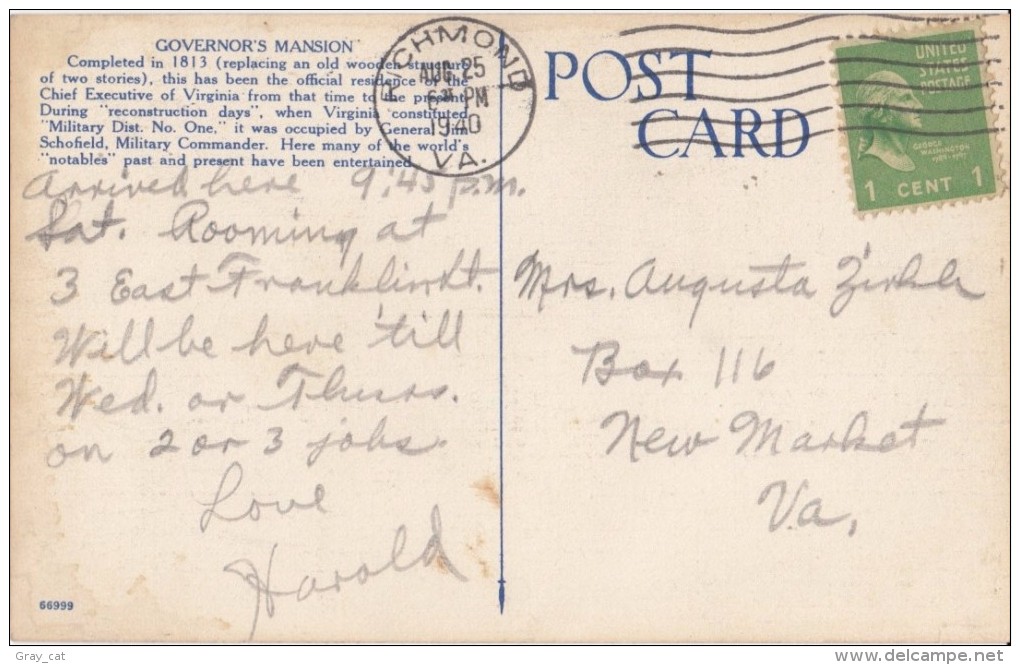 GOVERNOR'S MANSION
Completed in 1813 (replacing an old wooden structure
of two stories), this has been the official residence of the
Chief Executive of Virginia from that time to the present.
During "reconstruction days", when Virginia constituted
"Military Dist. No. One," it was occupied by General
Schofield, Military Commander. Here many of the world's
"notables" past and present have been entertained.
RICHMOND
AUG 25
6 PM
1940
VA.
POST
CARD
UNITED
STATES
POSTAGE
GEORGE
WASHINGTON
1 CENT 1
Arrived here 9:45 p.m.
Sat. Rooming at
3 East Franklin St.
Will be here 'till
Wed. or Thurs.
on 2 or 3 jobs.
Love
Harold
Mrs. Augusta Zirkle
Box 116
New Market
Va.
66999
Gray_cat
www.delcampe.net